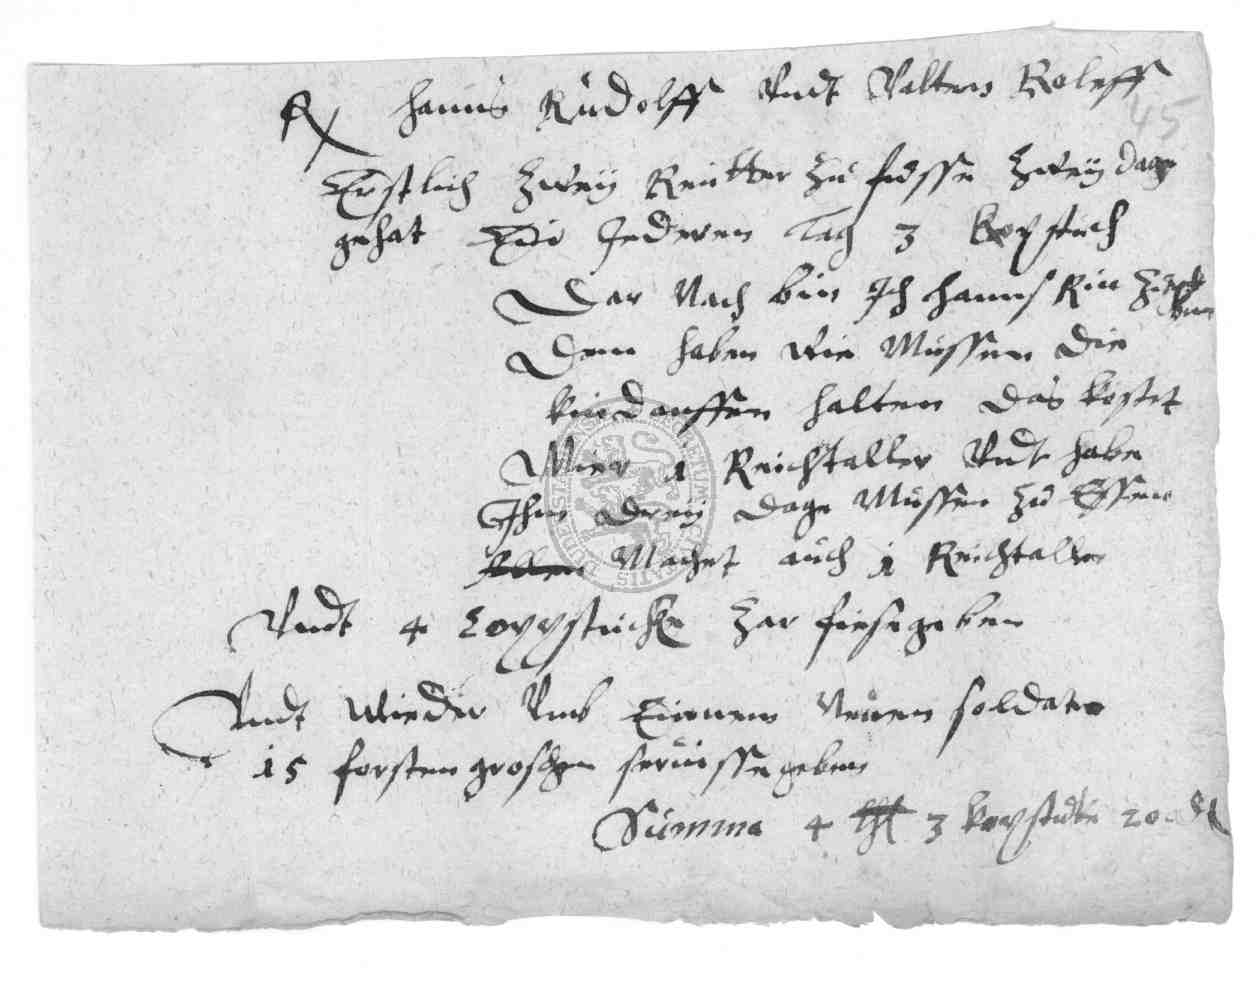 Hanns Rudolff Vndt Valten Roleff
45
Erstlich Zweÿ Reutter Zu fusse Zweÿ dage
gehat Die Jederen Tag 3 kopstuch
Dar Nach bin Ich Hanns Rin
Dem haben wie Mussen die
kindauffen halten das kostet
Mier 1 Reichtaller Vndt habe
Ihm dreÿ dage Mussen Zu Essen
Machet auch 1 Reichtaller
Vndt 4 Koppstucke Zar geben
Vndt Wieder Vmb Einem Neuen soldaten
15 forstengroschen seruisse geben
Summa 4 thl 3 kopstucke 20